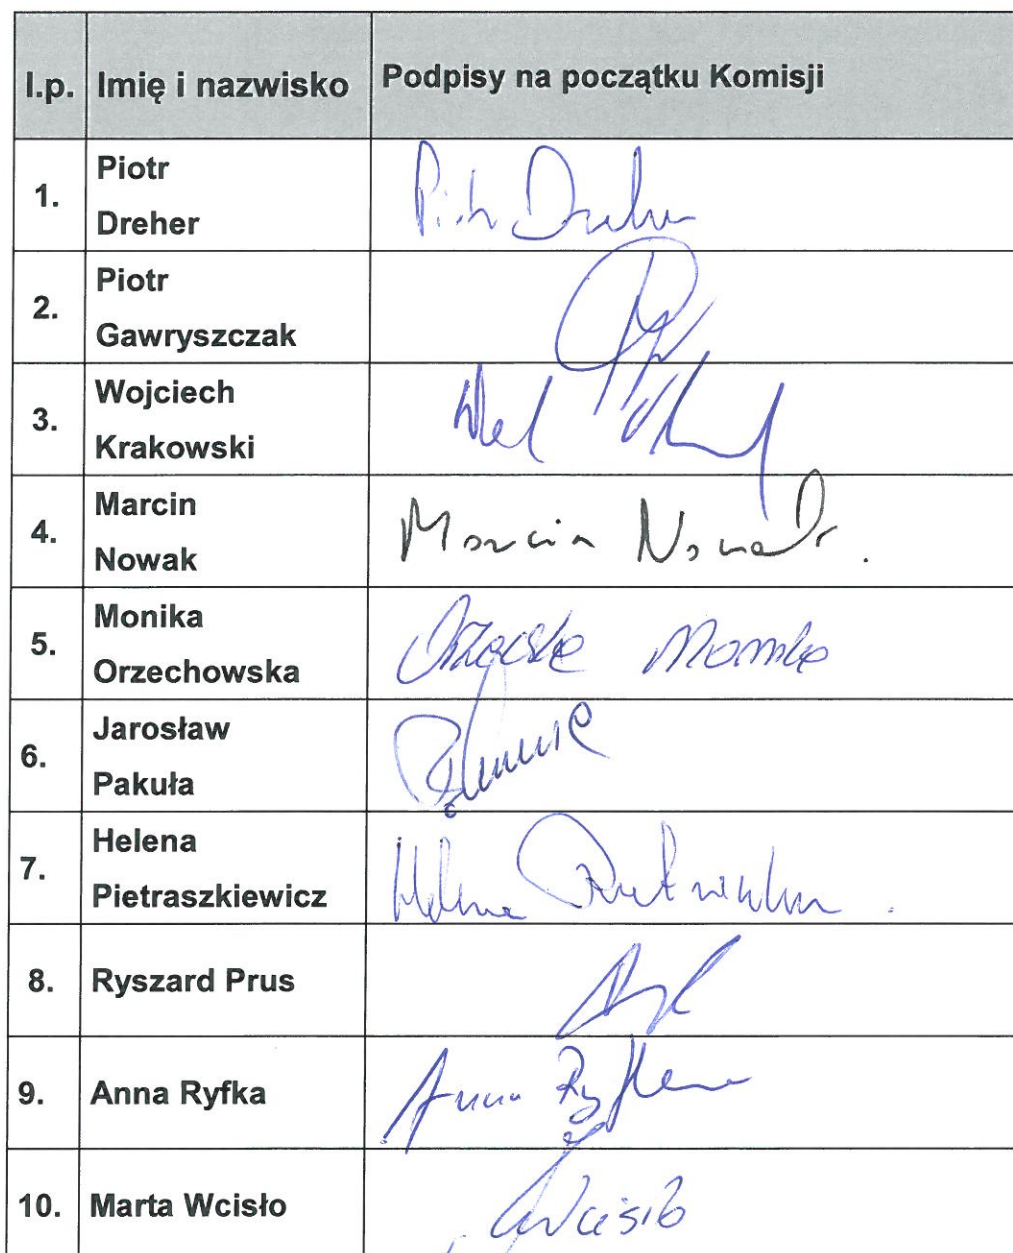 l.p. Imię i nazwisko Podpisy na początku Komisji
1. Piotr
Dreher
Piotr Dreher
2. Piotr
Gawryszczak
3. Wojciech
Krakowski
4. Marcin
Nowak
Marcin Nowak
5. Monika
Orzechowska
6. Jarosław
Pakuła
7. Helena
Pietraszkiewicz
Helena
8. Ryszard Prus
9. Anna Ryfka
Anna Ryfka
10. Marta Wcisło
Wcisło